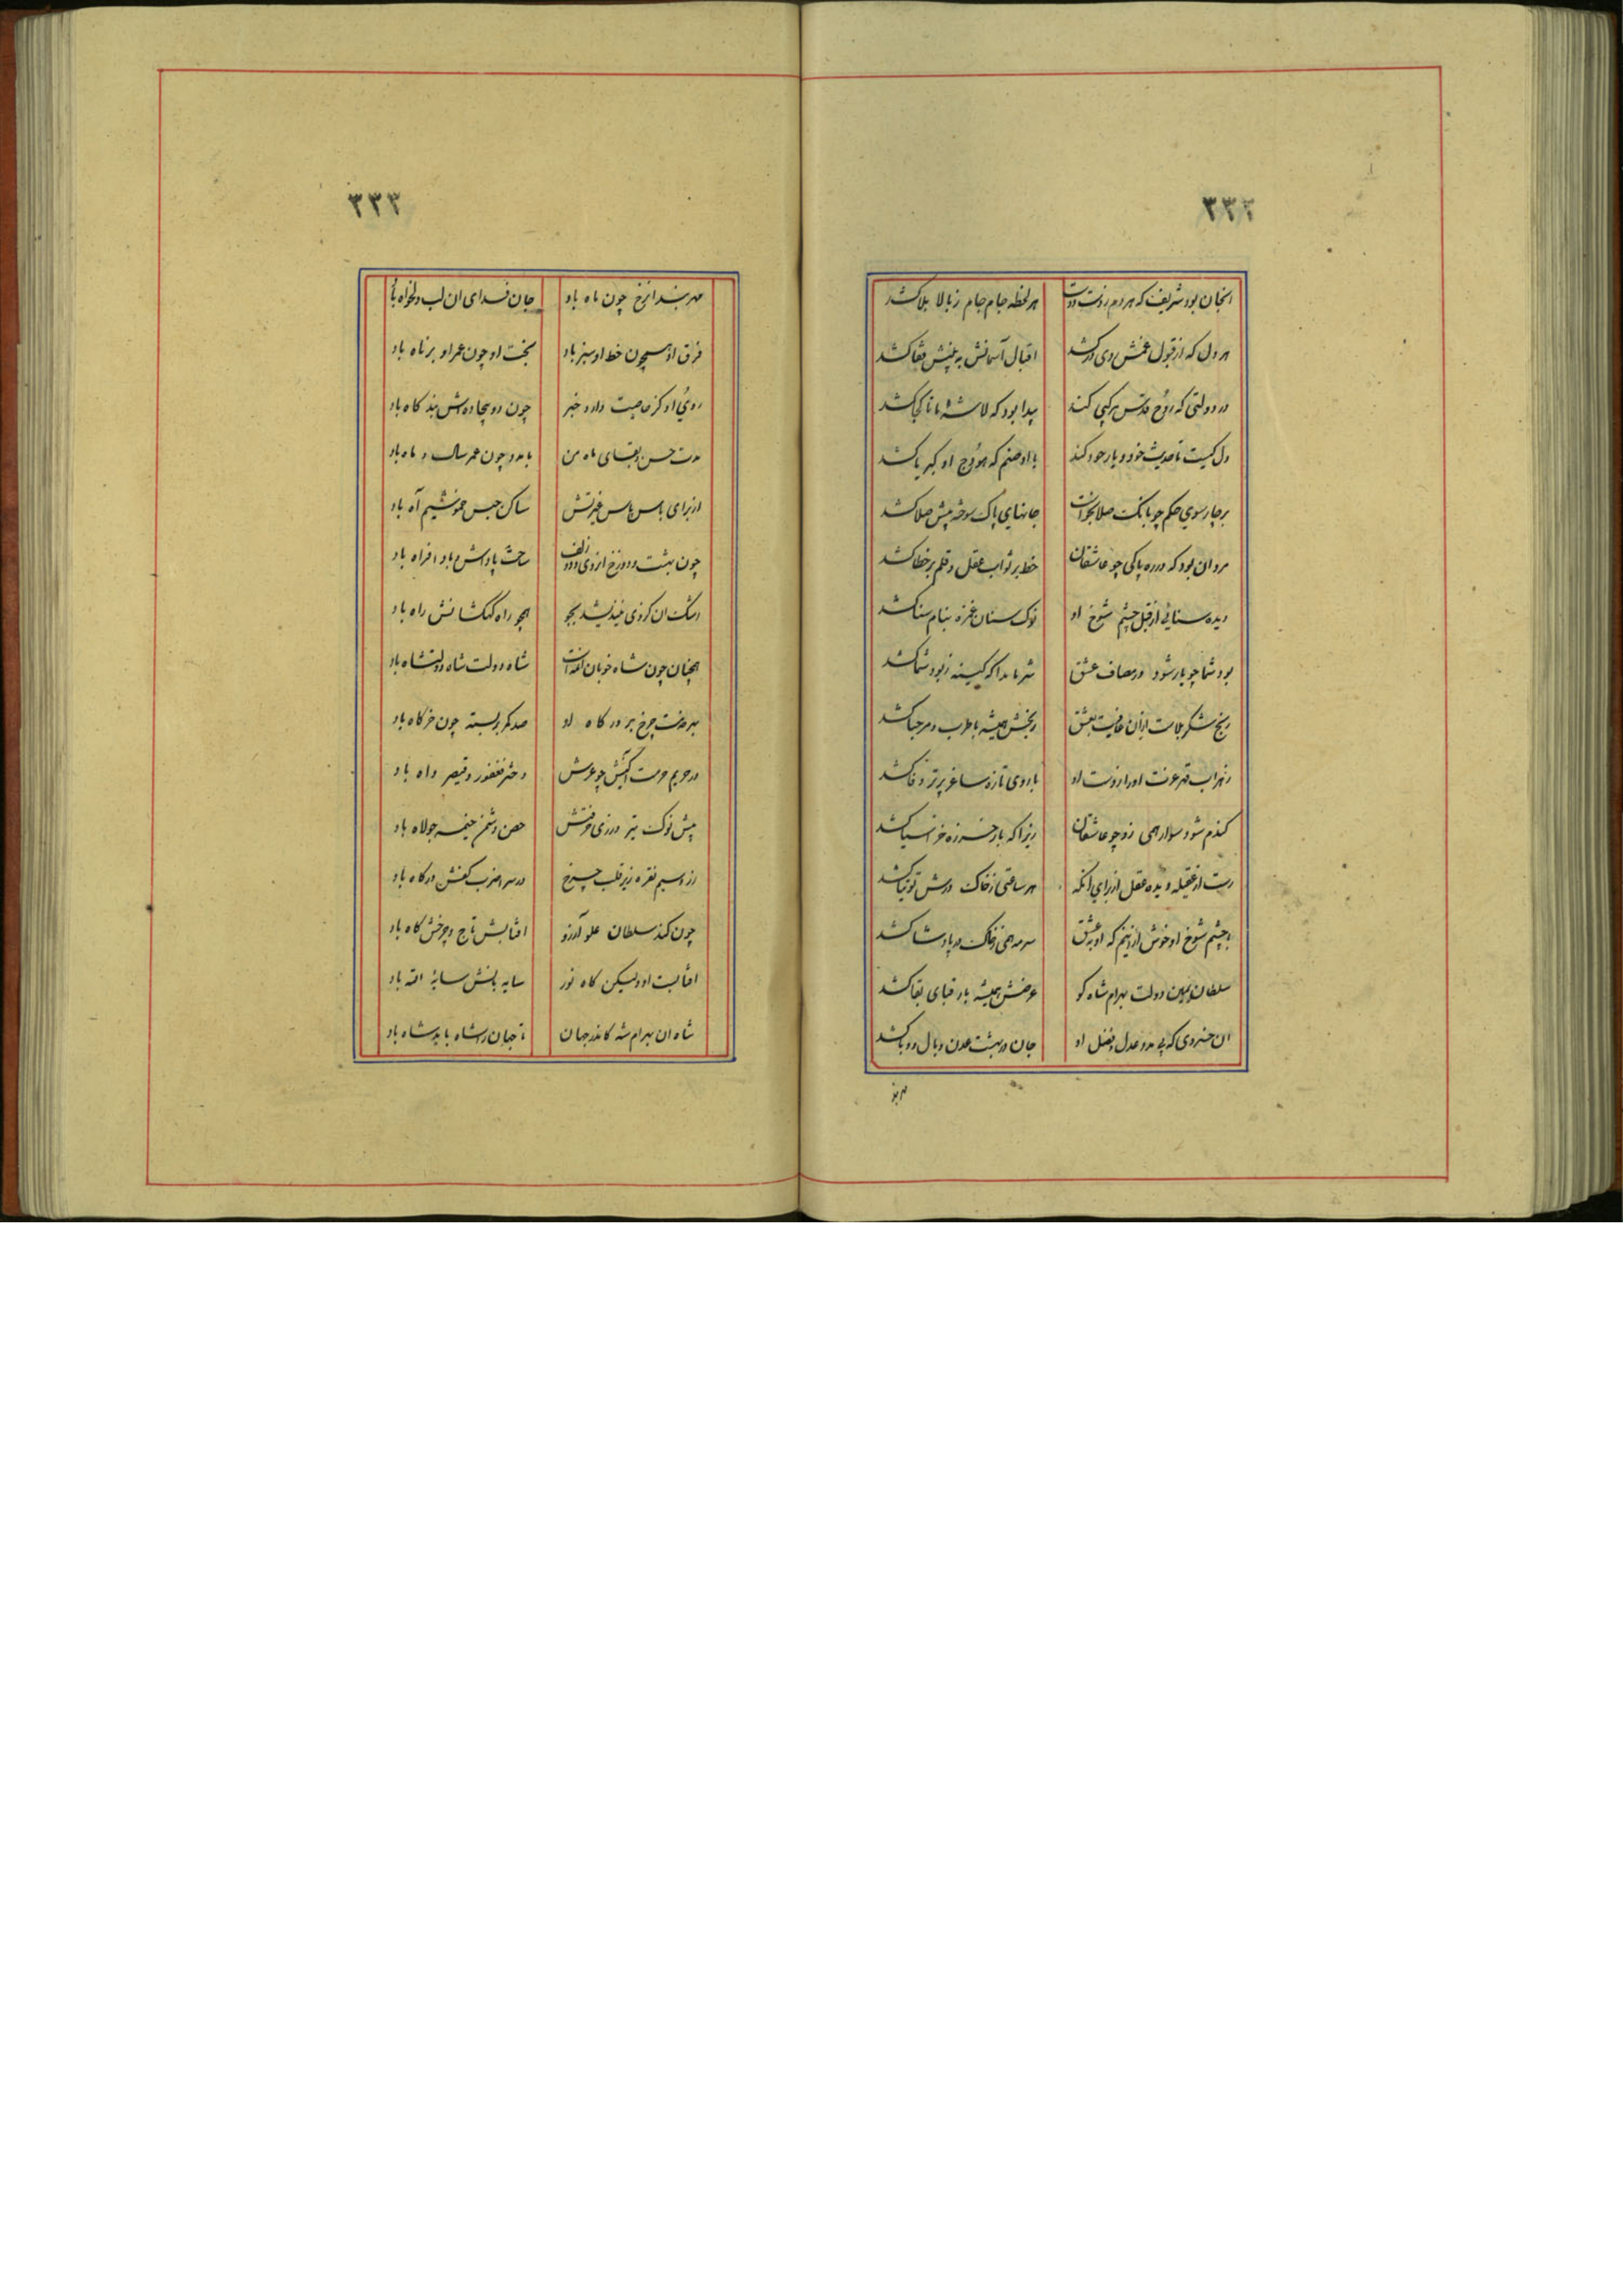 ۳۳۲
انجان بود شریف که هر دم ز دست دوست هر لحظه جام جام ز بالا بلا کشد
هر دل که از قبول غمش دی در کشد اقبال آسمانش به پیش قفا کشد
در دولتی که روح قدس مرکبی کند پیدا بود که لاشهٔ ما تا کجا کشد
دل کیست تا حدیث خود و یار خود کند با او صنم که هودج او کبریا کشد
بر چارسوی حکم چو بانگ صلا بخواست جانهای پاک سوخته پیش صلا کشد
مرد ان بود که در ره پاکی چو عاشقان خط بر ثواب عقل و قلم بر خطا کشد
دیده سنائی از قبل چشم شوخ او نوک سنان غمزه بنام سنا کشد
بود شما چو یار شود در مصاف عشق شرماندا که کینه ز بود شما کشد
رنج شکر بلاست ازان عافیت بعشق رنجش همیشه با طرب و مرحبا کشد
زهراب قهر عونت او را ز دست او با روی تازه ساغر پر تر وفا کشد
کندم شود سوار همی زد چو عاشقان زیرا که بار خرزه خر آسیا کشد
رست از عقیله دیده عقل از برای انکه هر ساعتی ز خاک درش توتیا کشد
با چشم شوخ او خوش ازانیم که او به عشق سرمه همی ز خاک در پادشا کشد
سلطان یمین دولت بهرام شاه کو عرضش همیشه بار قبای بقا کشد
ان خسروی که پی مدد عدل و فضل او جان در بهشت عدن وبال و وبا کشد
مربند
۳۳۳
جان فدای ان لب دلخواه باد
فرق او همچون خط او سبز باد بخت او چون عمر او برناه باد
روی او کز خاصیت دارد خبر چون دو بیجاده‌اش بند کاه باد
مدت حسن و بقای ماه من با مدد چون عمر سال و ماه باد
از برای پاس پاس غیرتش ساکن حبس خموشیم آه باد
چون بهشت و دوزخ از روی و زلف ساحت پاداش و باد افراه باد
اشک ان کز وی نیندیشد بجو همچو راه کهکشانش راه باد
همچنان چون شاه خوبان امد است شاه دولت شاه دولتشاه باد
بهر خدمت چرخ بر درکاه او صد کمر بر بسته چون خرکاه باد
در حریم حرمت اکنیش چو عرش دختر فغفور و قیصر داه باد
پیش نوک تیر درزی حرفتش حصن دشمن خیمه جولاه باد
زر و سیم نقره زیر قلب چرخ در سرا ضرب کفش درکاه باد
چون کند سلطان علو آرزو افتابش تاج و چرخش کاه باد
افتابست او ولیکن کاه نور سایه بانش سایهٔ الله باد
شاه ان بهرام شه کاندر جهان تا جهان را شاه باید شاه باد